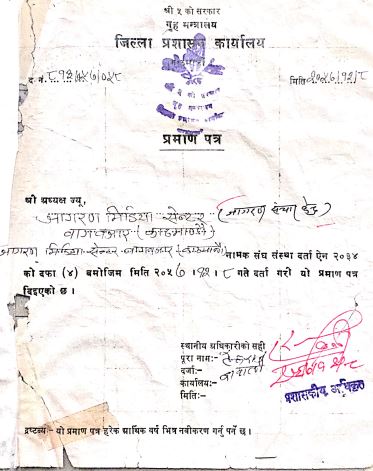 श्री ५ को सरकार
गृह मन्त्रालय
जिल्ला प्रशासन कार्यालय
द. नं.
मिति २०५७/१२/८
प्रमाण पत्र
श्री अध्यक्ष ज्यू,
जागरण मिडिया सेन्टर (जागरण संचार केन्द्र)
वागवजार (काठमाण्डौ)
जागरण मिडिया सेन्टर वागवजार (काठमाण्डौ) नामक संघ संस्था दर्ता ऐन २०३४
को दफा (४) बमोजिम मिति २०५७ । १२ । ८ गते दर्ता गरी यो प्रमाण पत्र
दिइएको छ ।
स्थानीय अधिकारीको सही
पूरा नाम:-
दर्जा:-
कार्यालय:-
मिति:-
प्रशासकीय अधिकृत
द्रष्टव्य:- यो प्रमाण पत्र हरेक आर्थिक वर्ष भित्र नवीकरण गर्नु पर्ने छ ।